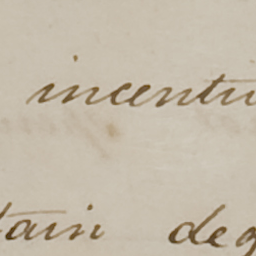 incentu
tain deg